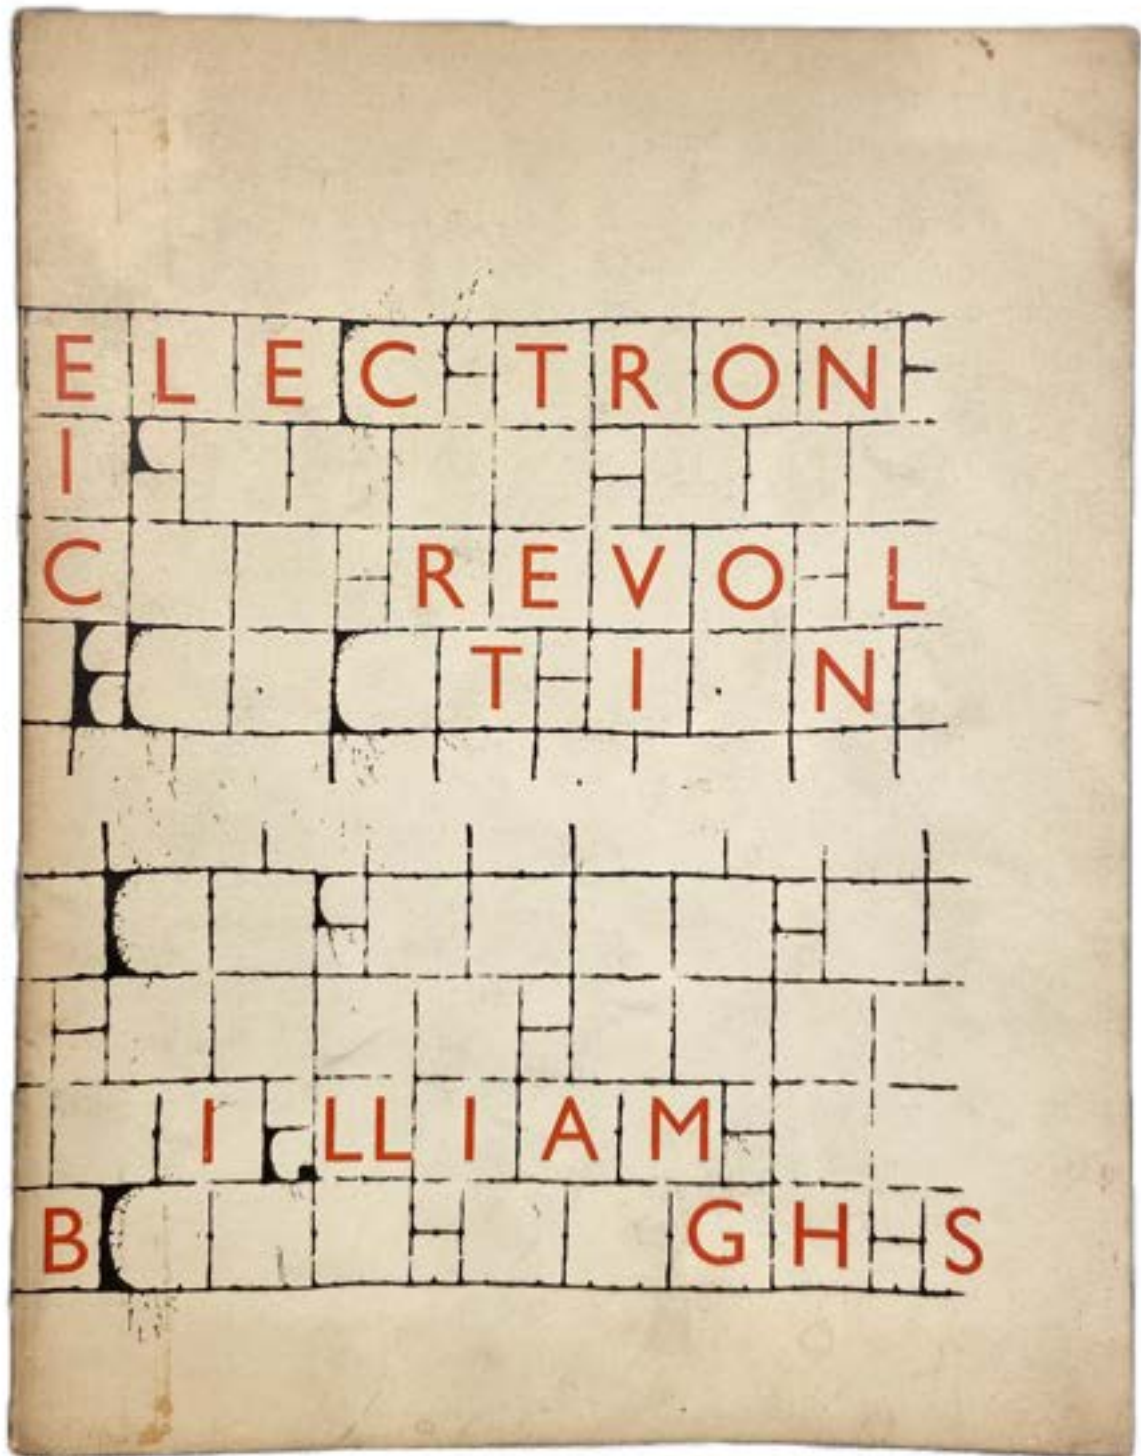 ELECTRON
I
C REVOL
TIN
ILLIAM
B GHS